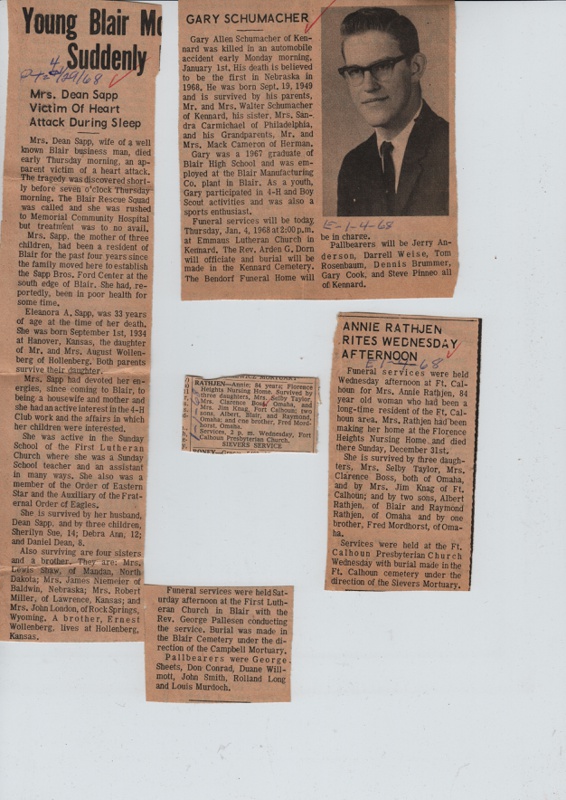 Young Blair Mo
Suddenly
4/29/68
Mrs. Dean Sapp
Victim Of Heart
Attack During Sleep
Mrs. Dean Sapp, wife of a well
known Blair business man, died
early Thursday morning, an ap-
parent victim of a heart attack.
The tragedy was discovered short-
ly before seven o'clock Thursday
morning. The Blair Rescue Squad
was called and she was rushed
to Memorial Community Hospital
but treatment was to no avail.
Mrs. Sapp, the mother of three
children, had been a resident of
Blair for the past four years since
the family moved here to establish
the Sapp Bros. Ford Center at the
south edge of Blair. She had, re-
portedly, been in poor health for
some time.
Eleanora A. Sapp, was 33 years
of age at the time of her death.
She was born September 1st, 1934
at Hanover, Kansas, the daughter
of Mr. and Mrs. August Wollen-
berg of Hollenberg. Both parents
survive their daughter.
Mrs. Sapp had devoted her en-
ergies, since coming to Blair, to
being a housewife and mother and
she had an active interest in the 4-H
Club work and the affairs in which
her children were interested.
She was active in the Sunday
School of the First Lutheran
Church where she was a Sunday
School teacher and an assistant
in many ways. She also was a
member of the Order of Eastern
Star and the Auxiliary of the Frat-
ernal Order of Eagles.
She is survived by her husband,
Dean Sapp, and by three children,
Sherilyn Sue, 14; Debra Ann, 12;
and Daniel Dean, 8.
Also surviving are four sisters
and a brother. They are: Mrs.
Lewis Shaw, of Mandan, North
Dakota; Mrs. James Niemeier of
Baldwin, Nebraska; Mrs. Robert
Miller, of Lawrence, Kansas; and
Mrs. John London, of Rock Springs,
Wyoming. A brother, Ernest
Wollenberg, lives at Hollenberg,
Kansas.
Funeral services were held Sat-
urday afternoon at the First Luth-
eran Church in Blair with the
Rev. George Pallesen conducting
the service. Burial was made in
the Blair Cemetery under the di-
rection of the Campbell Mortuary.
Pallbearers were George
Sheets, Don Conrad, Duane Will-
mott, John Smith, Rolland Long
and Louis Murdoch.
GARY SCHUMACHER
Gary Allen Schumacher of Ken-
nard was killed in an automobile
accident early Monday morning,
January 1st. His death is believed
to be the first in Nebraska in
1968. He was born Sept. 19, 1949
and is survived by his parents,
Mr. and Mrs. Walter Schumacher
of Kennard, his sister, Mrs. San-
dra Carmichael of Philadelphia,
and his Grandparents, Mr. and
Mrs. Mack Cameron of Herman.
Gary was a 1967 graduate of
Blair High School and was em-
ployed at the Blair Manufacturing
Co. plant in Blair. As a youth,
Gary participated in 4-H and Boy
Scout activities and was also a
sports enthusiast.
Funeral services will be today,
Thursday, Jan. 4, 1968 at 2:00 p.m.
at Emmaus Lutheran Church in
Kennard. The Rev. Arden G. Dorn
will officiate and burial will be
made in the Kennard Cemetery.
The Bendorf Funeral Home will
E-1-4-68
be in charge.
Pallbearers will be Jerry An-
derson, Darrell Weise, Tom
Rosenbaum, Dennis Brummer,
Gary Cook, and Steve Pinneo all
of Kennard.
RATHJEN—Annie; 84 years; Florence
Heights Nursing Home. Survived by
three daughters, Mrs. Selby Taylor,
Mrs. Clarence Boss, Omaha, and
Mrs. Jim Knag, Fort Calhoun; two
sons, Albert, Blair, and Raymond,
Omaha; and one brother, Fred Mord-
horst, Omaha.
Services, 2 p. m. Wednesday, Fort
Calhoun Presbyterian Church.
SIEVERS SERVICE
ANNIE RATHJEN
RITES WEDNESDAY
AFTERNOON
E-1-4-68
Funeral services were held
Wednesday afternoon at Ft. Cal-
houn for Mrs. Annie Rathjen, 84
year old woman who had been a
long-time resident of the Ft. Cal-
houn area. Mrs. Rathjen had been
making her home at the Florence
Heights Nursing Home and died
there Sunday, December 31st.
She is survived by three daugh-
ters, Mrs. Selby Taylor, Mrs.
Clarence Boss, both of Omaha,
and by Mrs. Jim Knag of Ft.
Calhoun; and by two sons, Albert
Rathjen, of Blair and Raymond
Rathjen, of Omaha and by one
brother, Fred Mordhorst, of Oma-
ha.
Services were held at the Ft.
Calhoun Presbyterian Church
Wednesday with burial made in the
Ft. Calhoun cemetery under the
direction of the Sievers Mortuary.